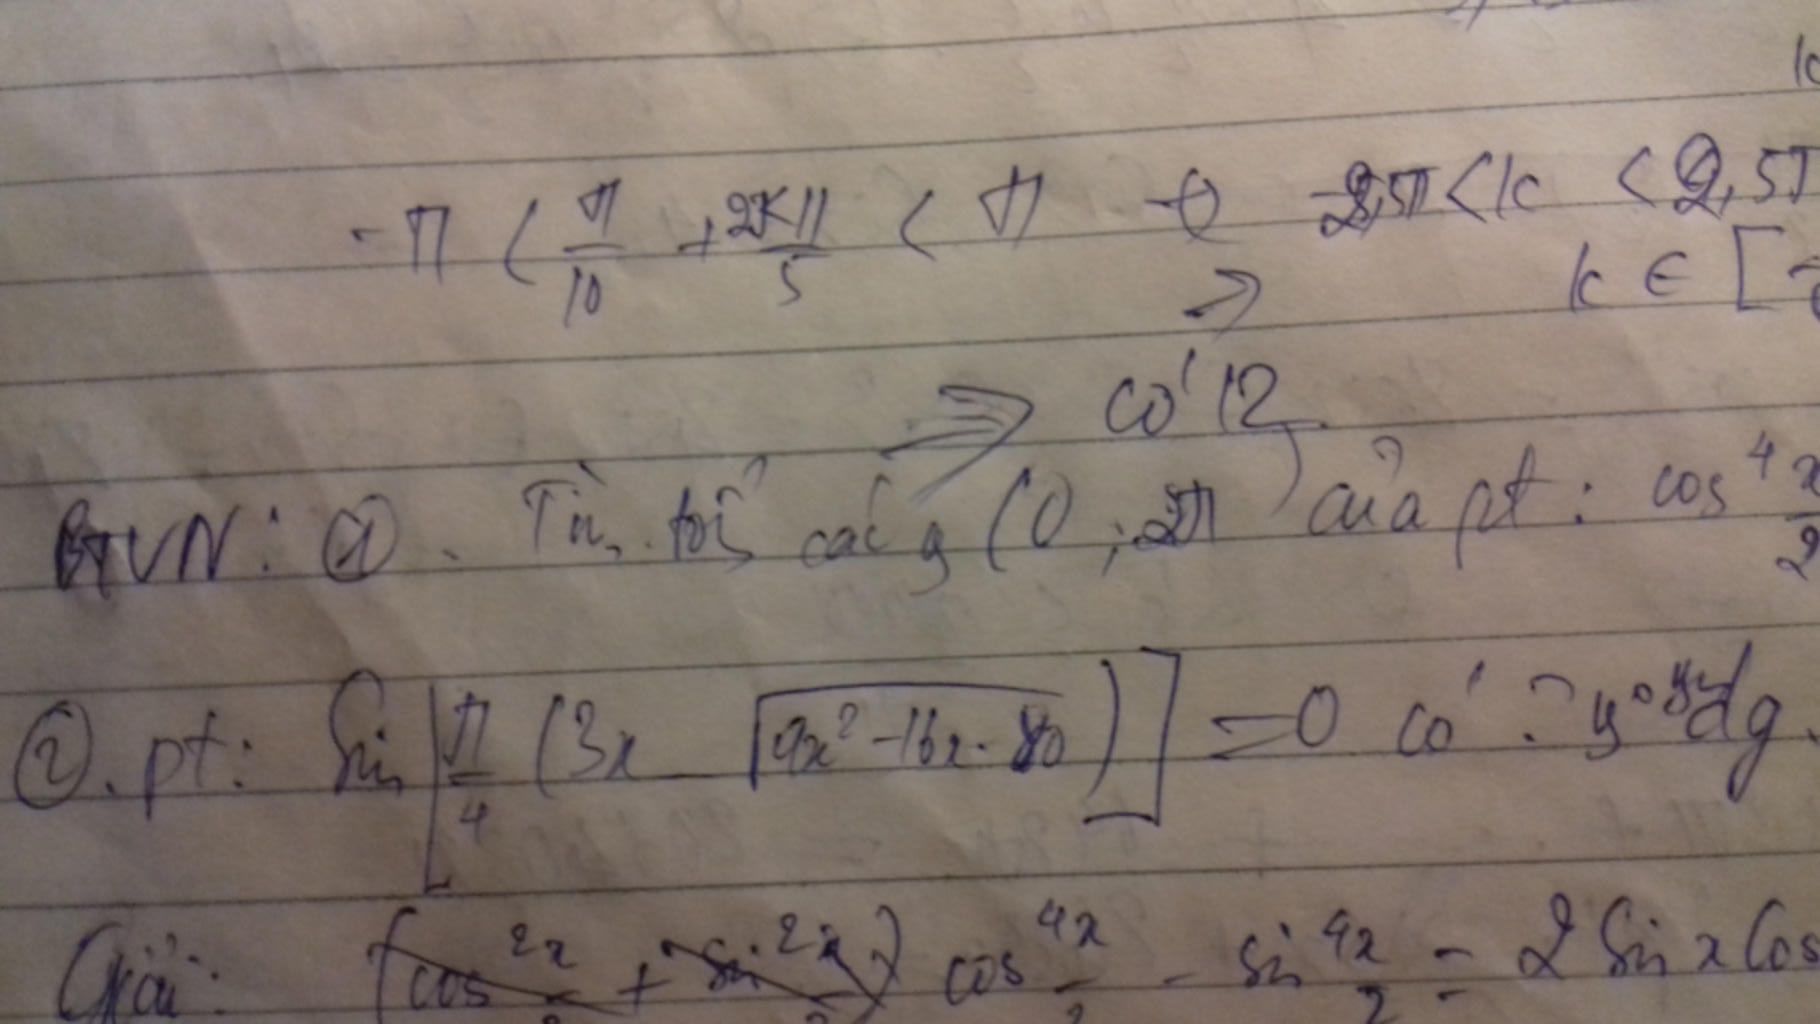 -π < π/10 + 2kπ/5 < π -2,5π < k < 2,5π
→ k ∈ [
⇒ có 12
BTVN: ①. Tìm tổng các g (0 ; 2π) của pt : cos⁴ x/2
②. pt: Sin [π/4 (3x - √(9x² - 16x - 80))] = 0 có ? dg.
Giải: cos⁴ x/2 - sin⁴ x/2 = 2 Sin x Cos